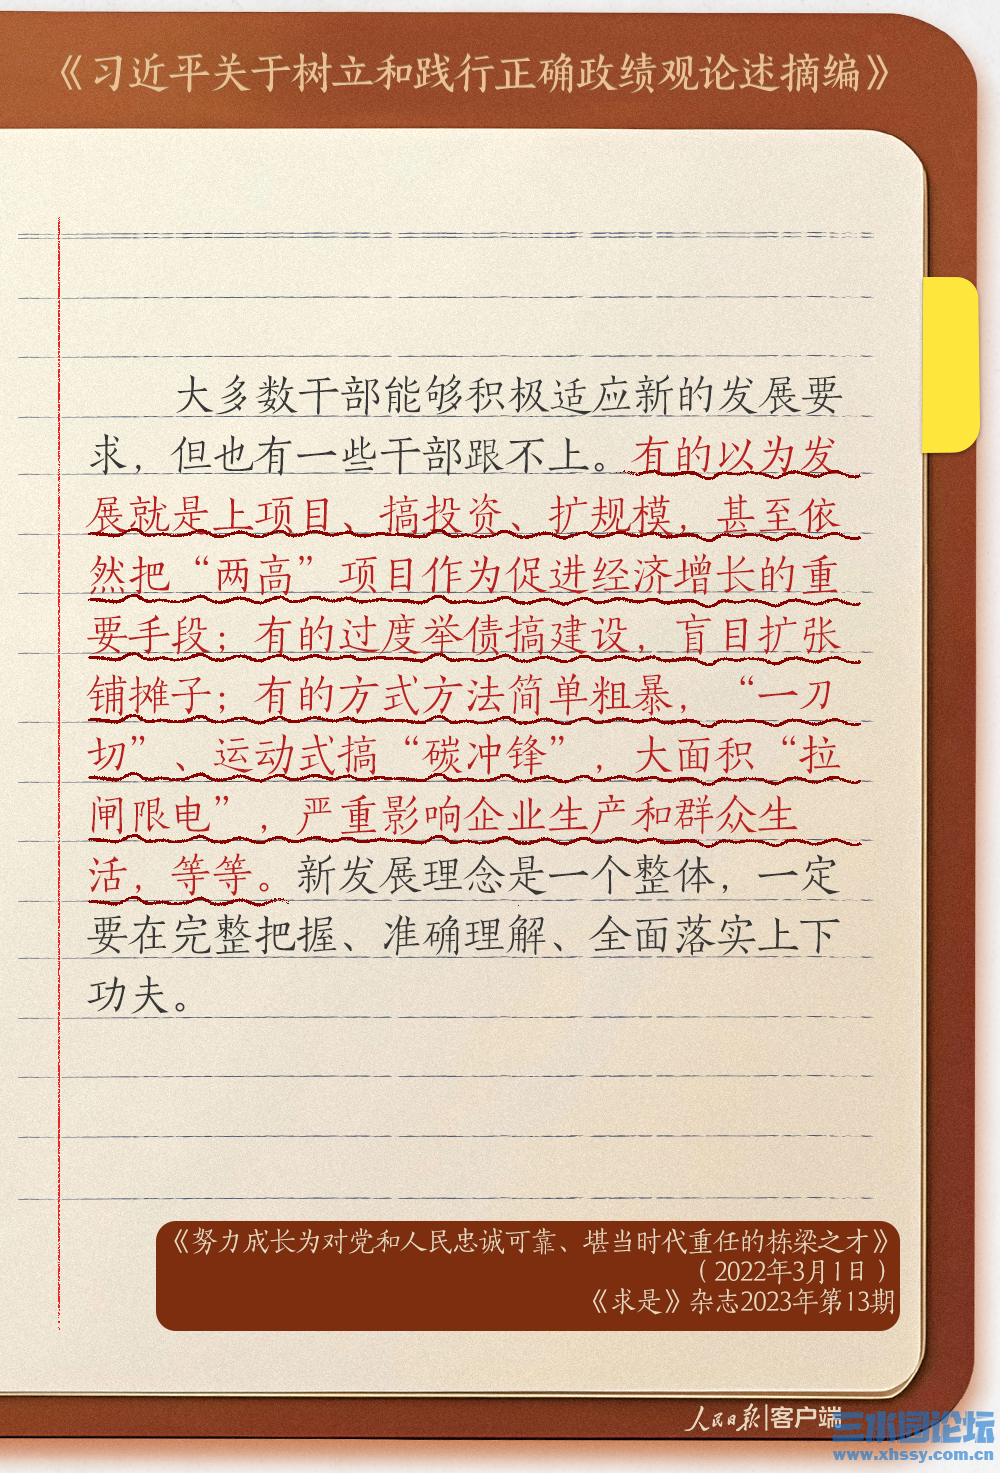 《习近平关于树立和践行正确政绩观论述摘编》
大多数干部能够积极适应新的发展要
求，但也有一些干部跟不上。有的以为发
展就是上项目、搞投资、扩规模，甚至依
然把“两高”项目作为促进经济增长的重
要手段；有的过度举债搞建设，盲目扩张
铺摊子；有的方式方法简单粗暴，“一刀
切”、运动式搞“碳冲锋”，大面积“拉
闸限电”，严重影响企业生产和群众生
活，等等。新发展理念是一个整体，一定
要在完整把握、准确理解、全面落实上下
功夫。
《努力成长为对党和人民忠诚可靠、堪当时代重任的栋梁之才》
（2022年3月1日）
《求是》杂志2023年第13期
人民日报|客户端
三水园论坛
www.xhssy.com.cn